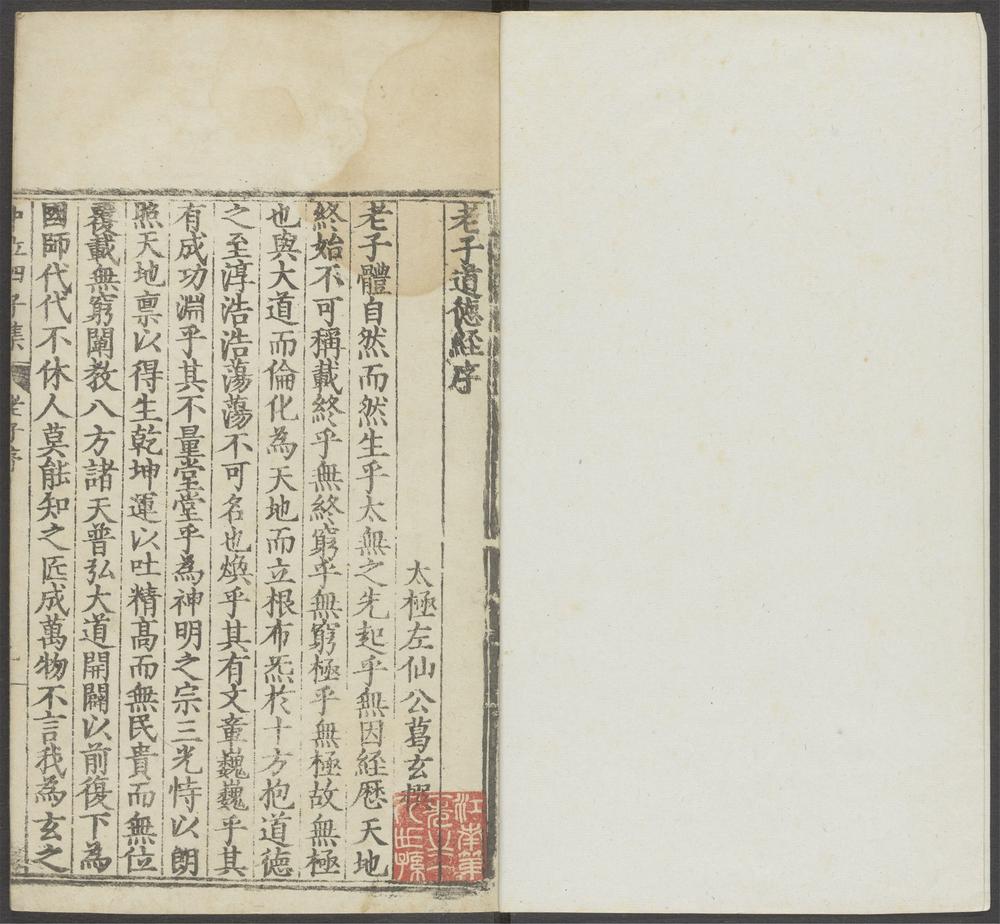 老子道德經序
太極左仙公葛玄撰
老子體自然而然生乎太無之先起乎無因經歷天地
終始不可稱載終乎無終窮乎無窮極乎無極故無極
也與大道而倫化為天地而立根布炁於十方抱道德
之至淳浩浩蕩蕩不可名也煥乎其有文章巍巍乎其
有成功淵乎其不量堂堂乎為神明之宗三光恃以朗
照天地禀以得生乾坤運以吐精高而無民貴而無位
覆載無窮闡教八方諸天普弘大道開闢以前復下為
國師代代不休人莫能知之匠成萬物不言我為玄之
中立四子集 老子序